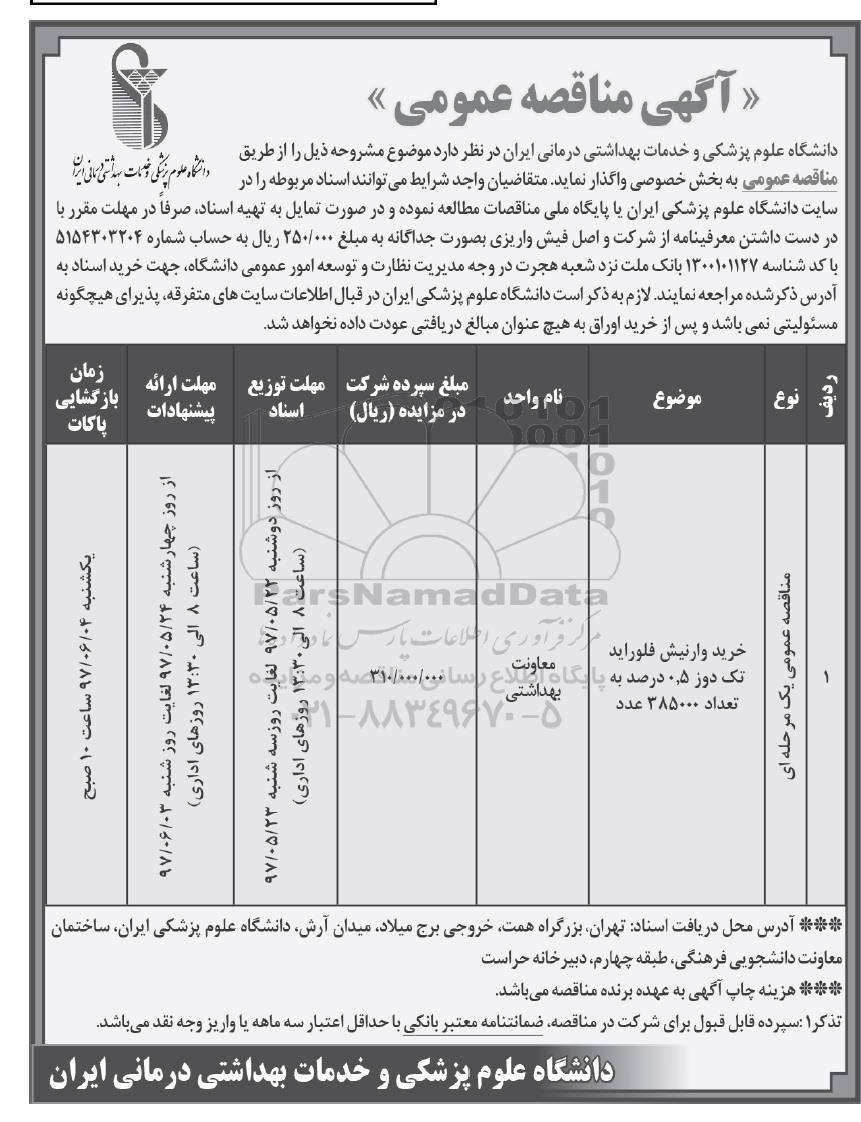 « آگهی مناقصه عمومی »
دانشگاه علوم پزشکی و خدمات بهداشتی درمانی ایران
دانشگاه علوم پزشکی و خدمات بهداشتی درمانی ایران در نظر دارد موضوع مشروحه ذیل را از طریق
مناقصه عمومی به بخش خصوصی واگذار نماید. متقاضیان واجد شرایط می‌توانند اسناد مربوطه را در
سایت دانشگاه علوم پزشکی ایران یا پایگاه ملی مناقصات مطالعه نموده و در صورت تمایل به تهیه اسناد، صرفاً در مهلت مقرر با
در دست داشتن معرفینامه از شرکت و اصل فیش واریزی بصورت جداگانه به مبلغ ۲۵۰/۰۰۰ ریال به حساب شماره ۵۱۵۴۳۰۳۲۰۴
با کد شناسه ۱۳۰۰۱۰۱۱۲۷ بانک ملت نزد شعبه هجرت در وجه مدیریت نظارت و توسعه امور عمومی دانشگاه، جهت خرید اسناد به
آدرس ذکر شده مراجعه نمایند. لازم به ذکر است دانشگاه علوم پزشکی ایران در قبال اطلاعات سایت های متفرقه، پذیرای هیچگونه
مسئولیتی نمی باشد و پس از خرید اوراق به هیچ عنوان مبالغ دریافتی عودت داده نخواهد شد.
ردیف
نوع
موضوع
نام واحد
مبلغ سپرده شرکت
در مزایده (ریال)
مهلت توزیع
اسناد
مهلت ارائه
پیشنهادات
زمان
بازگشایی
پاکات
۱
مناقصه عمومی یک مرحله ای
خرید وارنیش فلوراید
تک دوز ۰،۵ درصد به
تعداد ۳۸۵۰۰۰ عدد
معاونت
بهداشتی
۳۱۰/۰۰۰/۰۰۰
از روز دوشنبه ۹۷/۰۵/۲۲ لغایت روز سه شنبه ۹۷/۰۵/۲۳
(ساعت ۸ الی ۱۳:۳۰ روزهای اداری)
از روز چهارشنبه ۹۷/۰۵/۲۴ لغایت روز شنبه ۹۷/۰۶/۰۳
(ساعت ۸ الی ۱۳:۳۰ روزهای اداری)
یکشنبه ۹۷/۰۶/۰۴ ساعت ۱۰ صبح
ParsNamadData
مرکز فرآوری اطلاعات پارس نماد داده‌ها
پایگاه اطلاع رسانی مناقصه و مزایده
۰۲۱-۸۸۳۴۹۶۷۰-۵
*** آدرس محل دریافت اسناد: تهران، بزرگراه همت، خروجی برج میلاد، میدان آرش، دانشگاه علوم پزشکی ایران، ساختمان
معاونت دانشجویی فرهنگی، طبقه چهارم، دبیرخانه حراست
*** هزینه چاپ آگهی به عهده برنده مناقصه می‌باشد.
تذکر۱ :سپرده قابل قبول برای شرکت در مناقصه، ضمانتنامه معتبر بانکی با حداقل اعتبار سه ماهه یا واریز وجه نقد می‌باشد.
دانشگاه علوم پزشکی و خدمات بهداشتی درمانی ایران